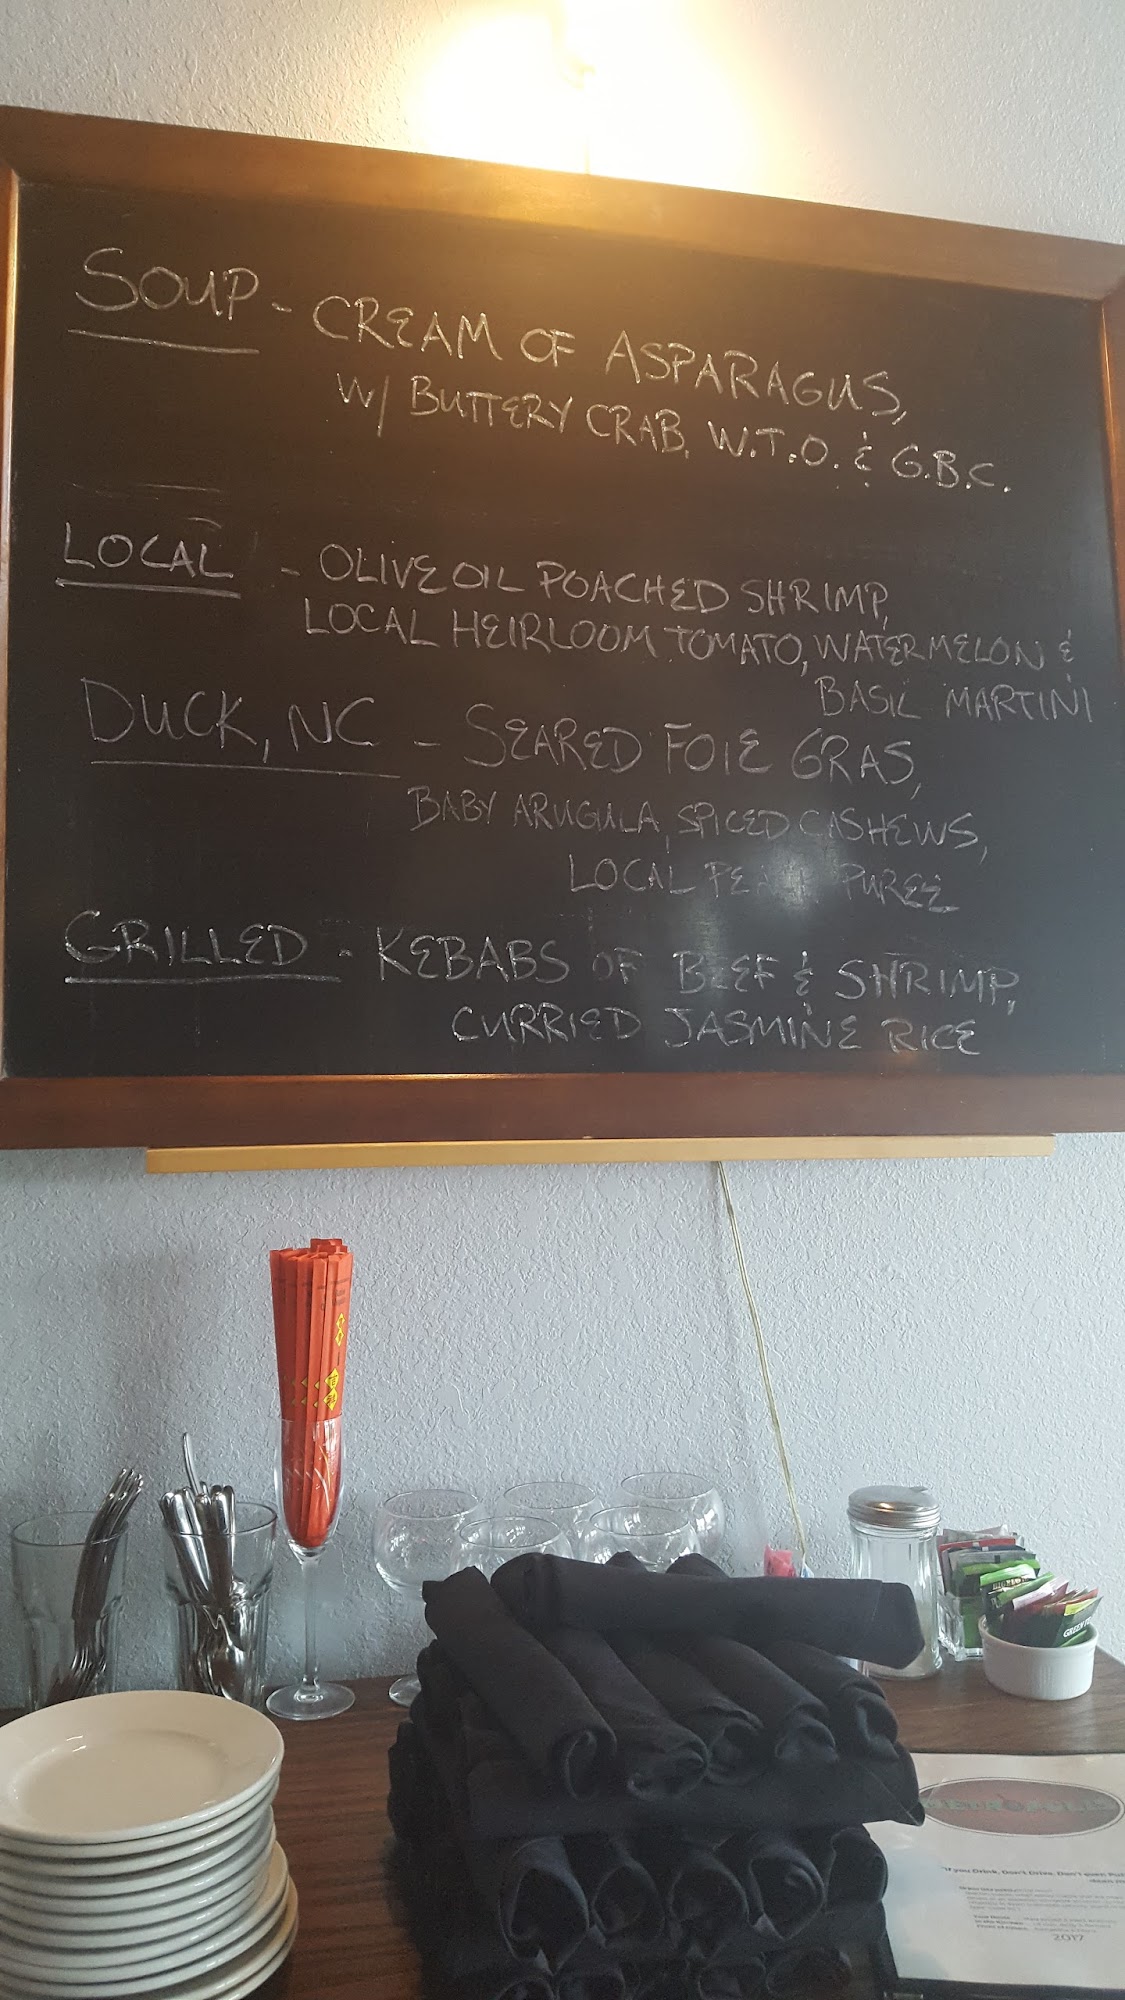 SOUP - CREAM OF ASPARAGUS,
W/ BUTTERY CRAB, W.T.O. & G.B.C.
LOCAL - OLIVE OIL POACHED SHRIMP,
LOCAL HEIRLOOM TOMATO, WATERMELON &
BASIL MARTINI
DUCK, NC - SEARED FOIE GRAS,
BABY ARUGULA, SPICED CASHEWS,
LOCAL PEACH PUREE
GRILLED - KEBABS OF BEEF & SHRIMP,
CURRIED JASMINE RICE
GREEN
METROPOLIS
If you Drink, Don't Drive. Don't even
2017